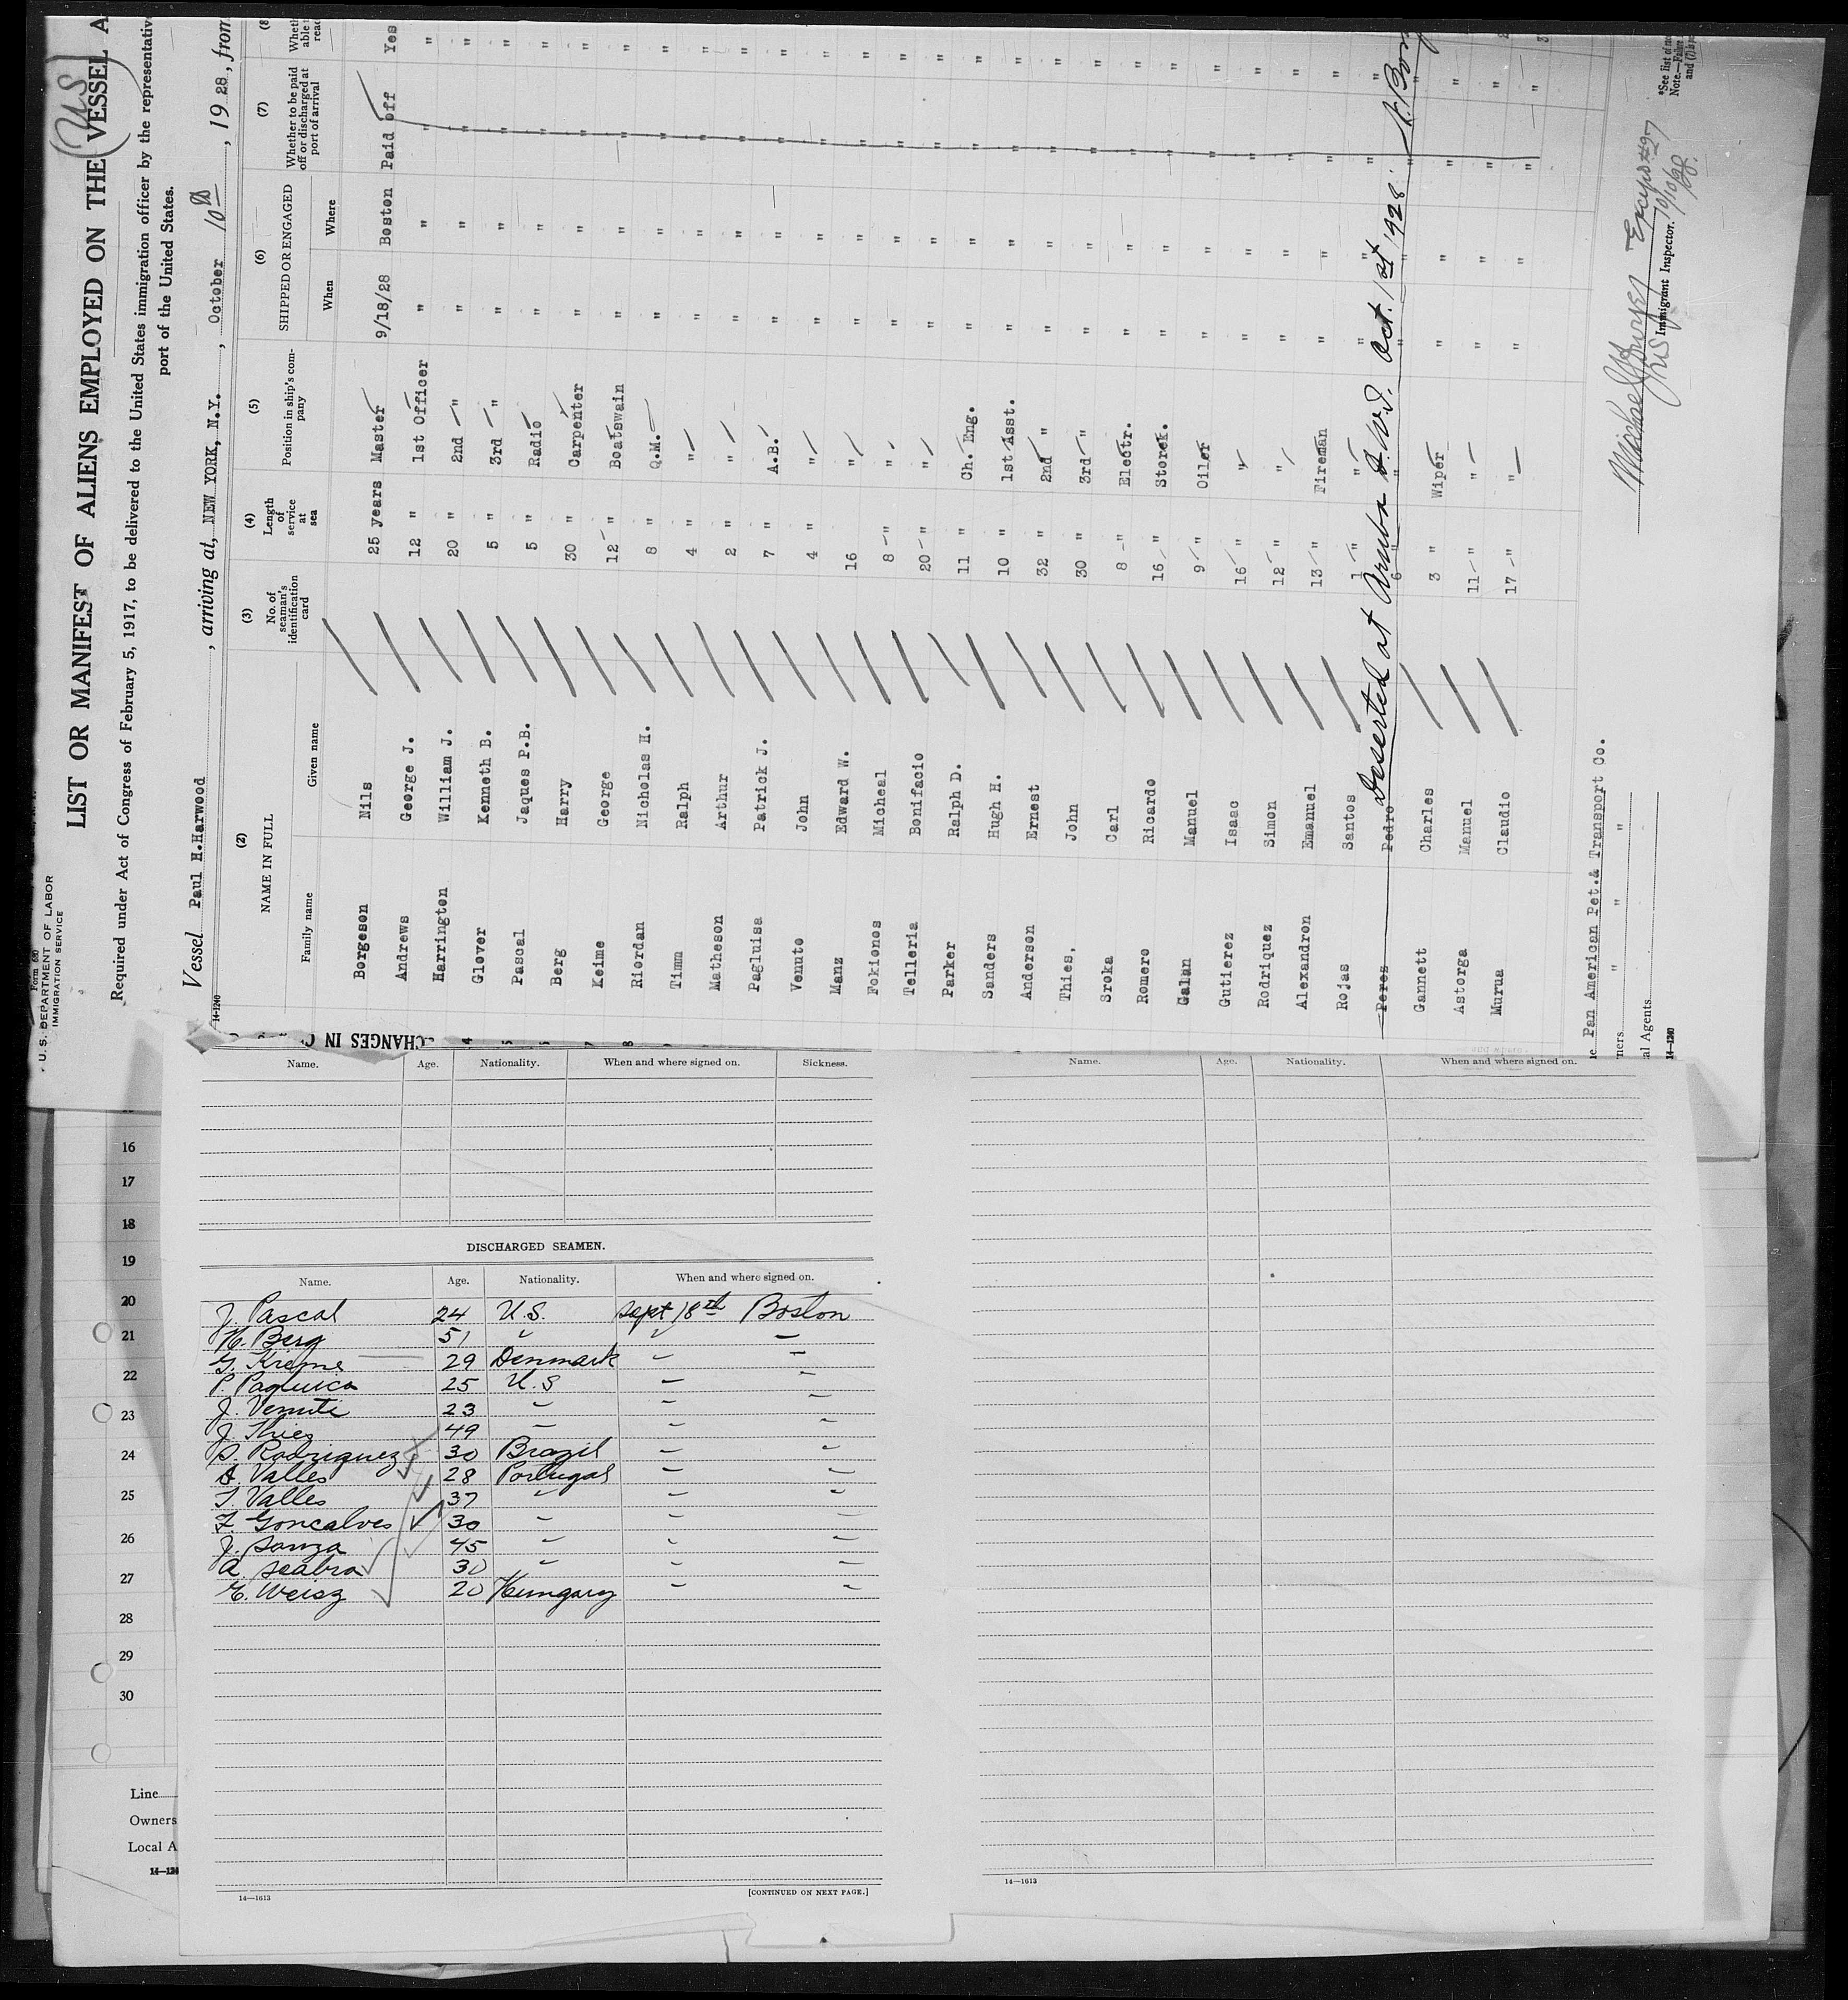 Form 680
U. S. DEPARTMENT OF LABOR
IMMIGRATION SERVICE
(US)
LIST OR MANIFEST OF ALIENS EMPLOYED ON THE VESSEL A
Required under Act of Congress of February 5, 1917, to be delivered to the United States immigration officer by the representativ
port of the United States.
Vessel Paul H.Harwood, arriving at, NEW YORK, N.Y., October 10th, 1928, from
14-1240
(2) (3) (4) (5) (6) (7) (8)
NAME IN FULL No. of seaman's identification card Length of service at sea Position in ship's company SHIPPED OR ENGAGED Whether to be paid off or discharged at port of arrival
Family name Given name When Where
Borgeson Nils 25 years Master 9/18/28 Boston Paid off Yes
Andrews George J. 12 " 1st Officer " " " "
Harrington William J. 20 " 2nd " " " " "
Glover Kenneth B. 5 " 3rd " " " " "
Pascal Jaques P.B. 5 " Radio " " " "
Berg Harry 30 " Carpenter " " " "
Keime George 12 " Boatswain " " " "
Riordan Nicholas H. 8 " Q.M. " " " "
Timm Ralph 4 " " " " " "
Matheson Arthur 2 " " " " " " "
Pagluisa Patrick J. 7 " A.B. " " " "
Venuto John 4 " " " " " "
Manz Edward W. 16 " " " " "
Fokionos Micheal 8 " " " " " "
Telleria Bonifacio 20 " " " " " "
Parker Ralph D. 11 " Ch. Eng. " " " "
Sanders Hugh H. 10 " 1st Asst. " " " "
Anderson Ernest 32 " 2nd " " " " "
Thies, John 30 " 3rd " " " " "
Sroka Carl 8 " Electr. " " " "
Romero Ricardo 16 " Storek. " " " "
Galan Manuel 9 " Oiler " " " "
Gutierez Isaac 16 " " " " " "
Rodriquez Simon 12 " " " " " "
Alexandron Emanuel 13 " Fireman " " " "
Rojas Santos 1 " " " " " "
Peres Pedro Deserted at Aruba D.W.I. Oct. 1st 1928
Gannett Charles 3 " Wiper " " " "
Astorga Manuel 11 " " " " " "
Murua Claudio 17 " " " " " "
Pan American Pet.& Transport Co.
ners " " "
al Agents
14-1240
Immigrant Inspector.
10/10/28
*See list of
Note.—Failure
CHANGES IN C
Name. Age. Nationality. When and where signed on. Sickness.
Name. Age. Nationality. When and where signed on.
16
17
18
19
20
21
22
23
24
25
26
27
28
29
30
Line
Owners
Local A
DISCHARGED SEAMEN.
Name. Age. Nationality. When and where signed on.
J. Pascal 24 U.S. Sept 18th Boston
H. Berg 51 " " "
G. Kreme 29 Denmark " "
P. Paquica 25 U.S " "
J. Venuti 23 " " "
J. Thies 49 " " "
S. Rodriguez 30 Brazil " "
A. Valles 28 Portugal " "
T. Valles 37 " " "
F. Goncalves 30 " " "
J. Souza 45 " " "
A. Seabra 30 " " "
E. Weisz 20 Hungary " "
14—1613
[CONTINUED ON NEXT PAGE.]
14—1613